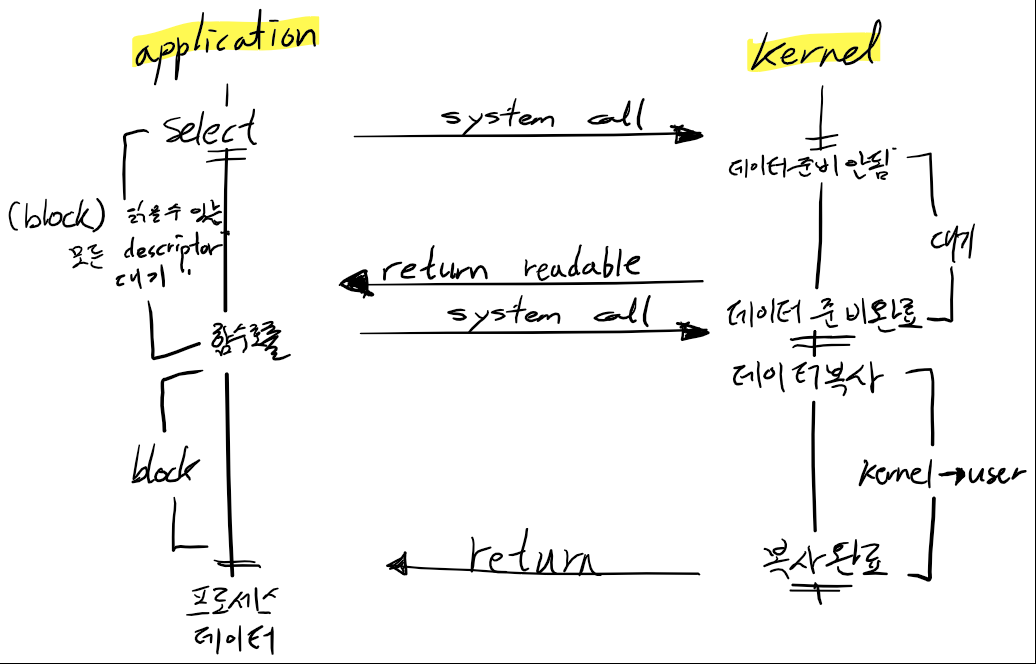 application
kernel
select
system call
데이터 준비 안됨
(block) 읽을 수 있는
모든 descriptor
대기
대기
return readable
system call
데이터 준비완료
함수호출
데이터 복사
block
kernel → user
return
복사 완료
프로세스
데이터